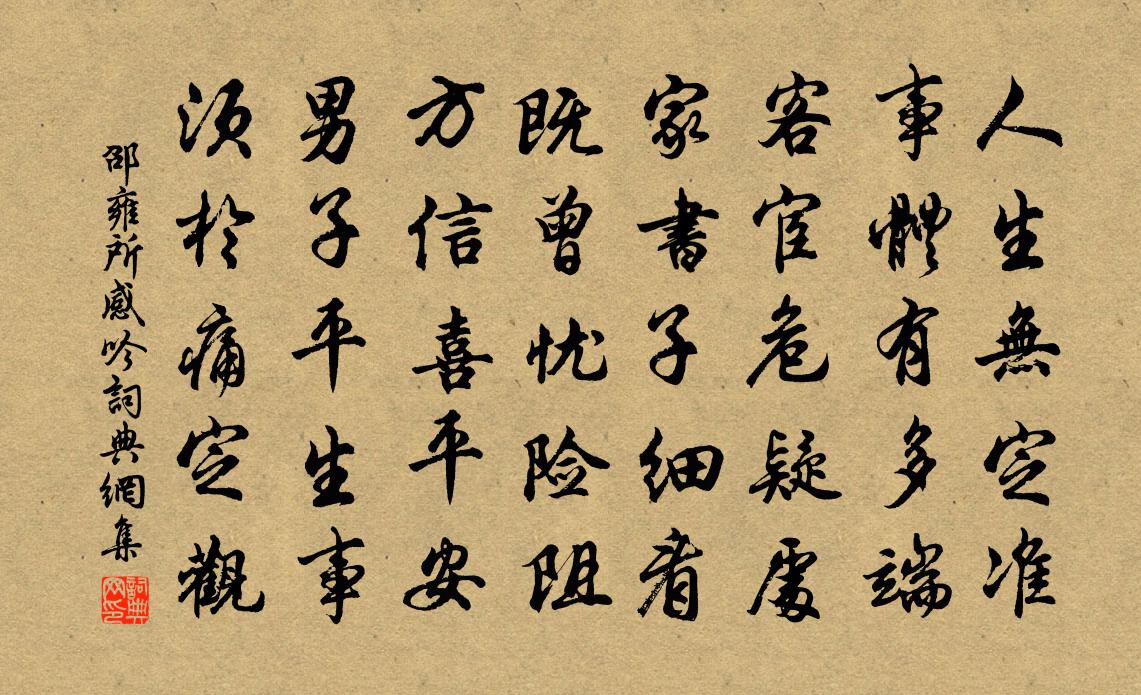 人生無定准
事體有多端
客宦危疑處
家書子細看
既曾忧险阻
方信喜平安
男子平生事
須於痛定觀
邵雍所感吟詞典網集
詞典網印